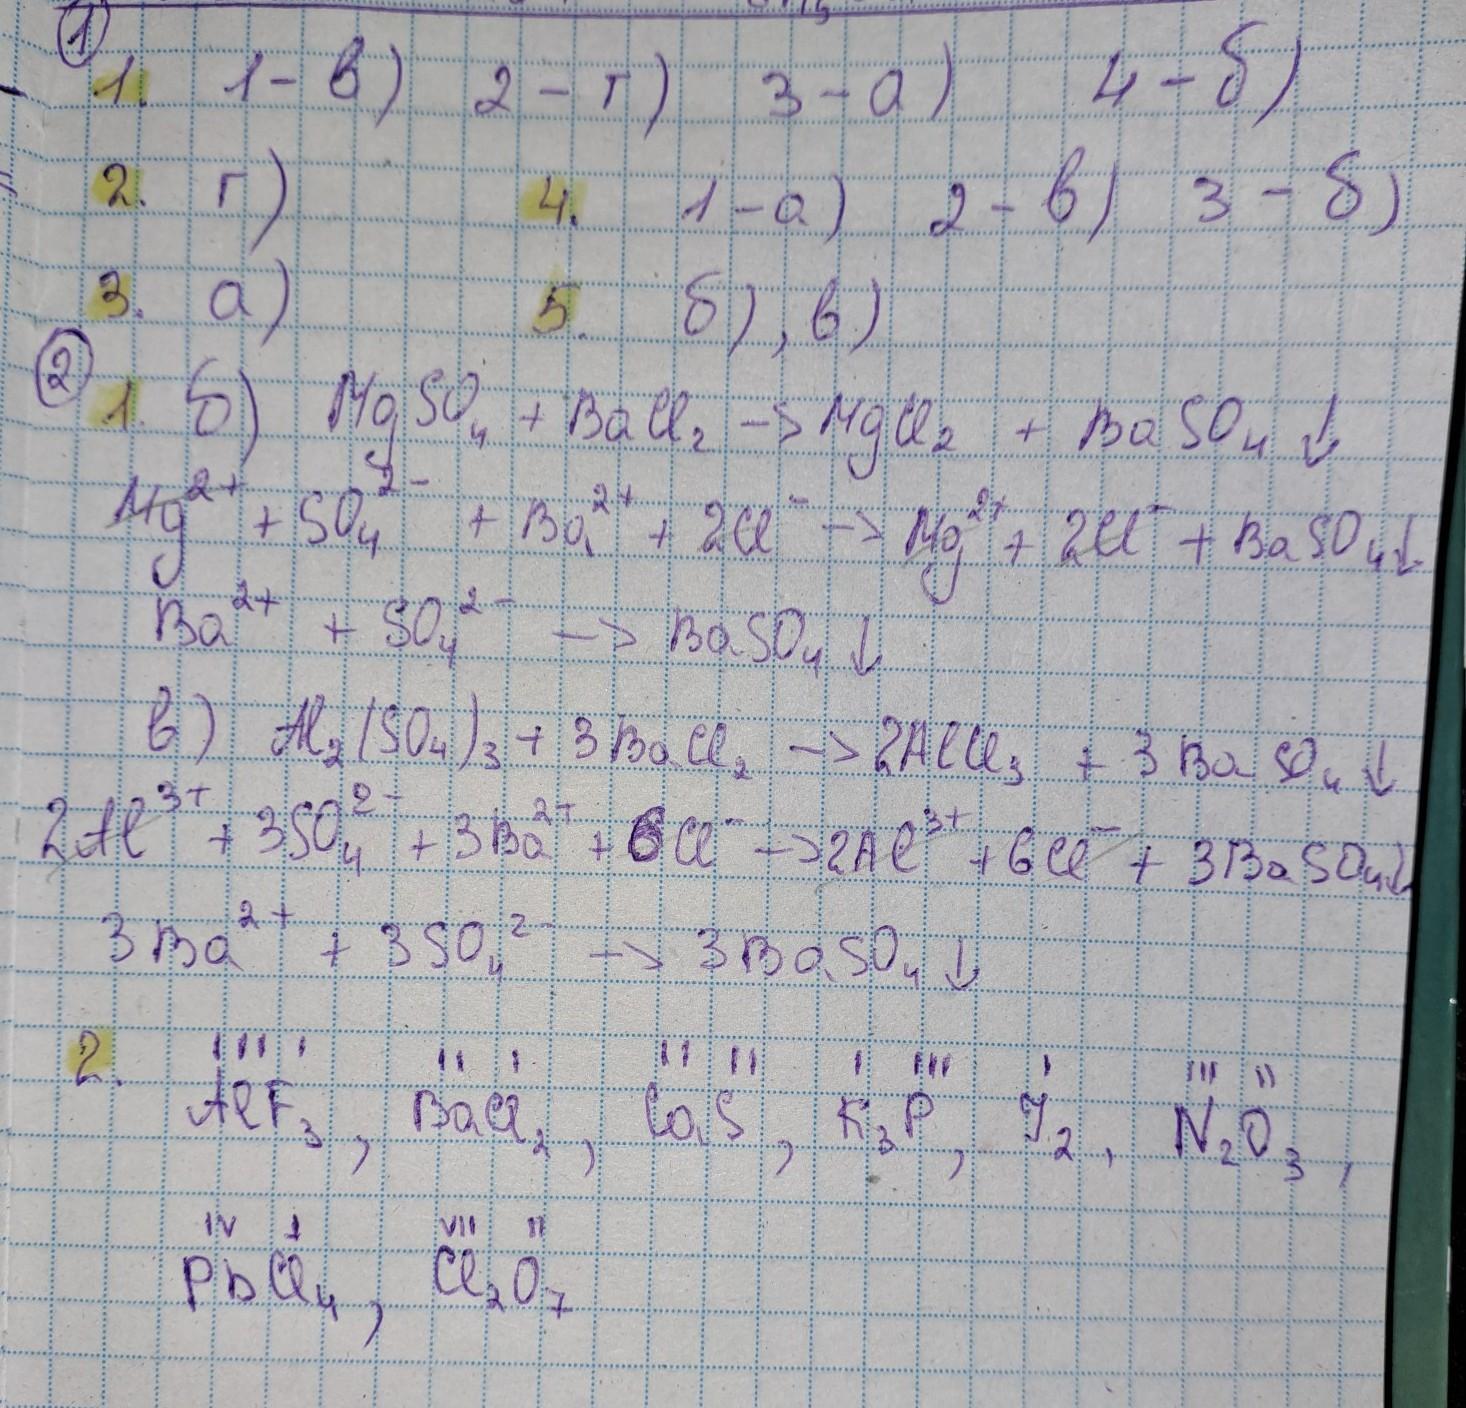 ①
1. 1-в) 2-г) 3-а) 4-б)
2. г) 4. 1-а) 2-в) 3-б)
3. а) 5. б), в)
②
1. б) MgSO₄ + BaCl₂ -> MgCl₂ + BaSO₄↓
Mg²⁺ + SO₄²⁻ + Ba²⁺ + 2Cl⁻ -> Mg²⁺ + 2Cl⁻ + BaSO₄↓
Ba²⁺ + SO₄²⁻ -> BaSO₄↓
в) Al₂(SO₄)₃ + 3BaCl₂ -> 2AlCl₃ + 3BaSO₄↓
2Al³⁺ + 3SO₄²⁻ + 3Ba²⁺ + 6Cl⁻ -> 2Al³⁺ + 6Cl⁻ + 3BaSO₄↓
3Ba²⁺ + 3SO₄²⁻ -> 3BaSO₄↓
III I II I II II I III I III II
2. AlF₃, BaCl₂, CaS, K₃P, J₂, N₂O₃,
IV I VII II
PbCl₄, Cl₂O₇